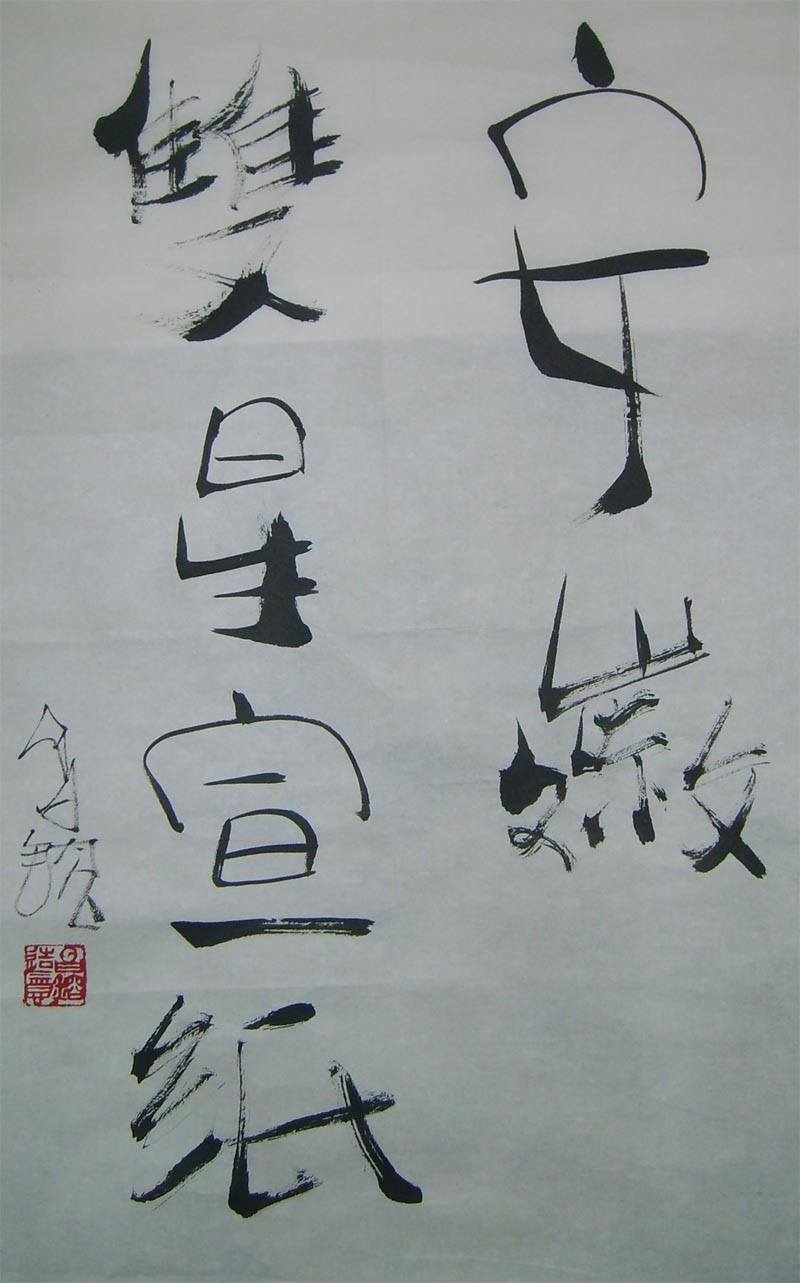 安徽
雙星宣纸